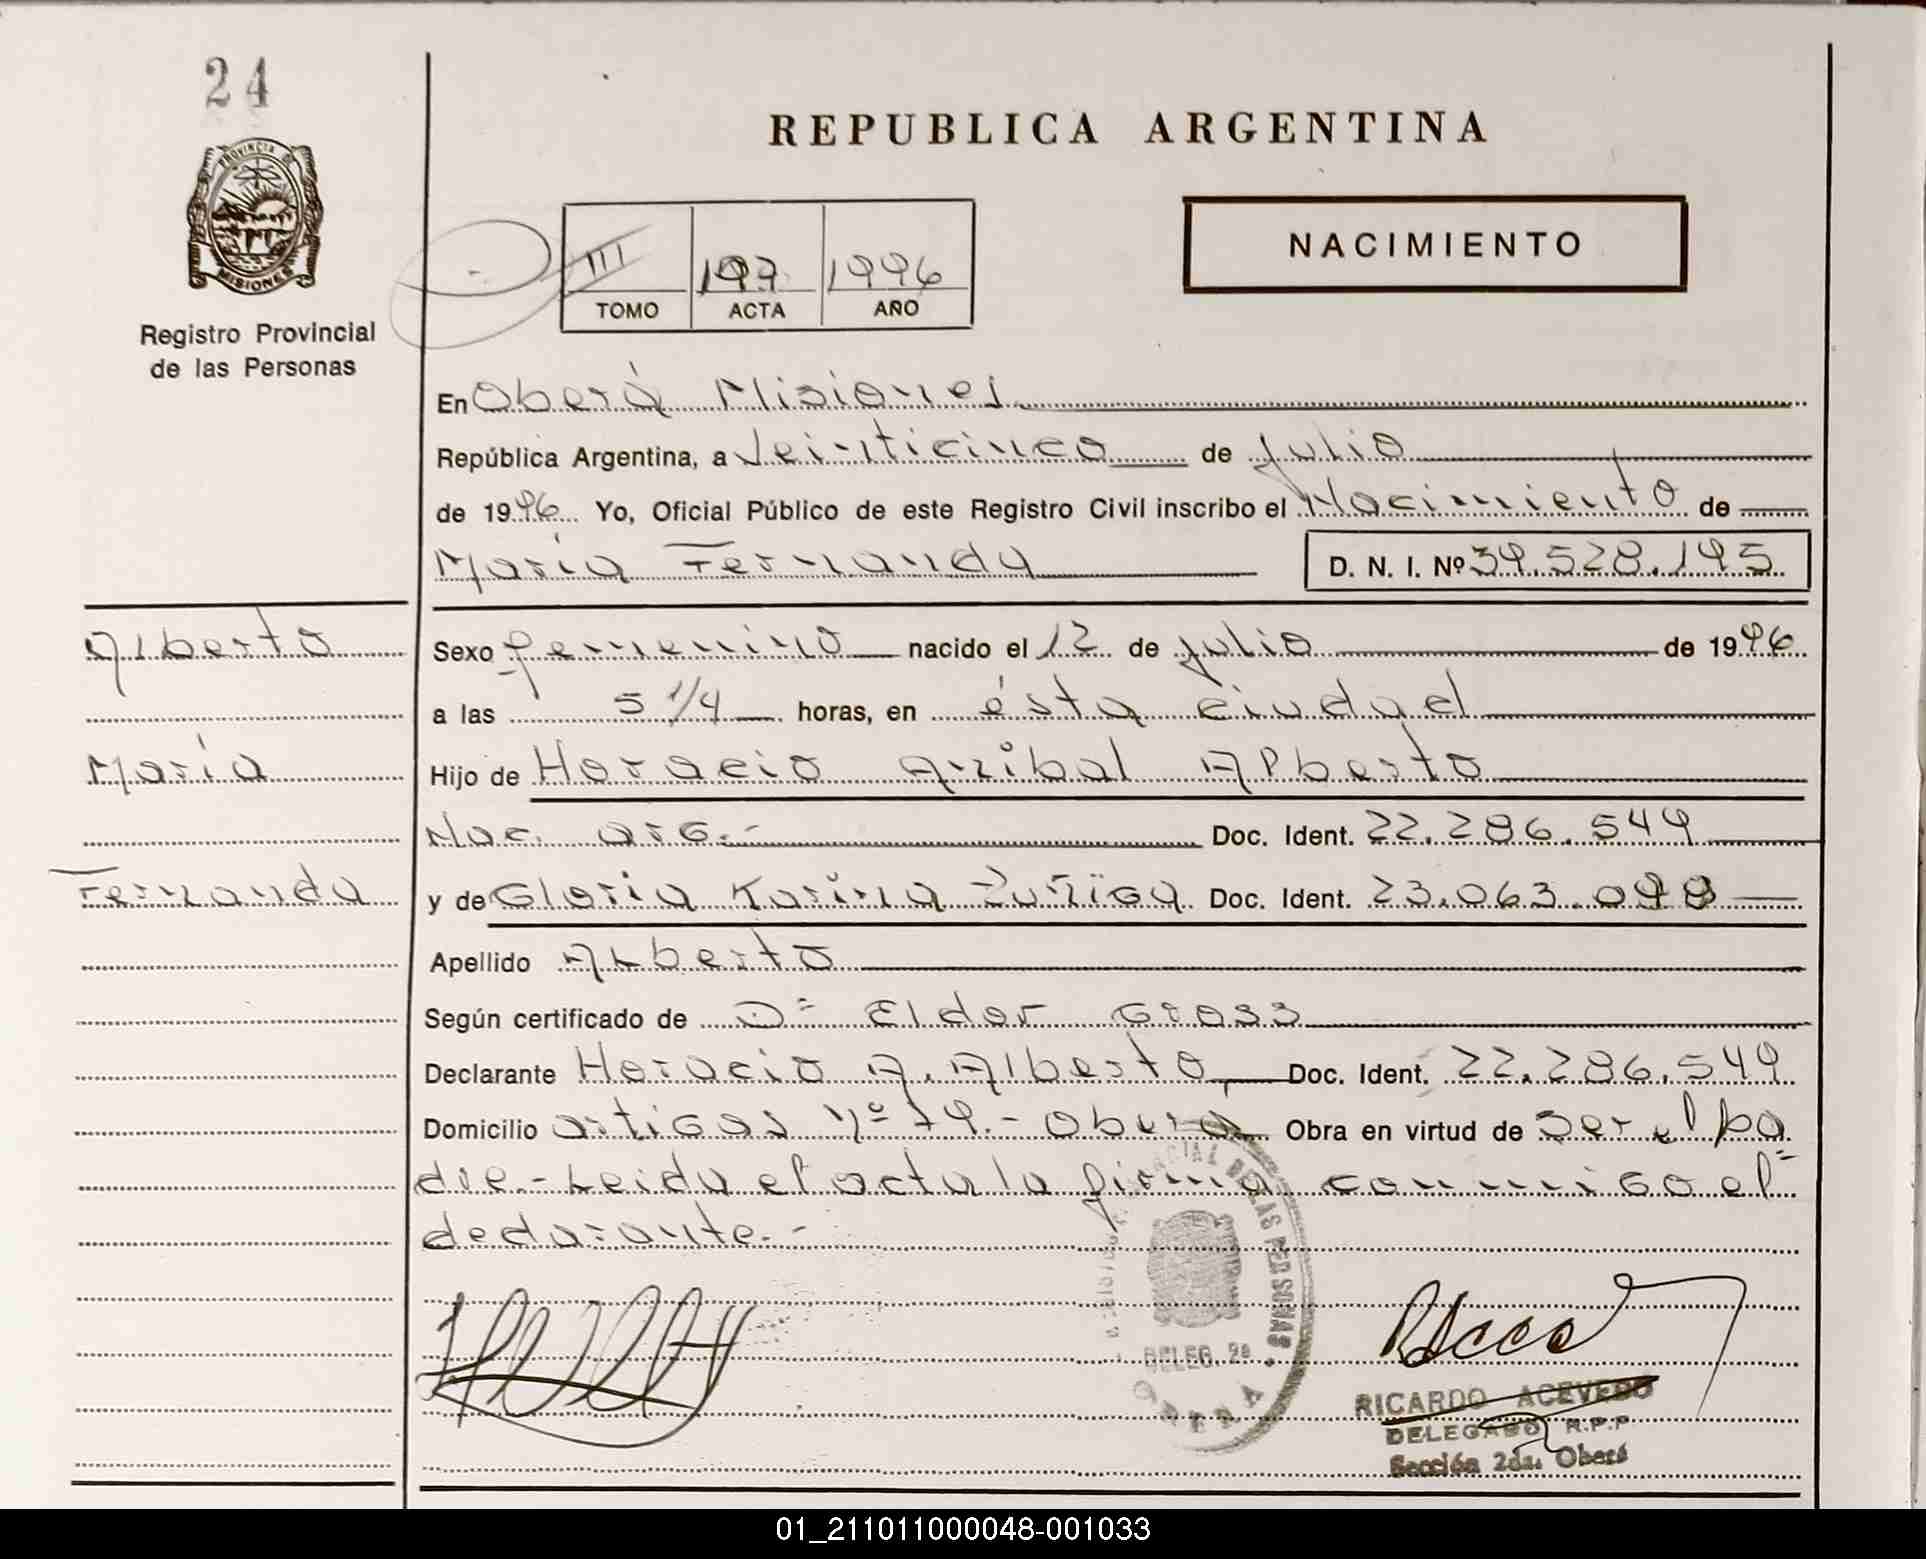 24
PROVINCIA DE
MISIONES
Registro Provincial
de las Personas
REPUBLICA ARGENTINA
III 197 1996
TOMO ACTA AÑO
NACIMIENTO
En Oberá Misiones
República Argentina, a Veinticinco de Julio
de 1996 Yo, Oficial Público de este Registro Civil inscribo el Nacimiento de
María Fernanda D. N. I. Nº 39.528.195
Alberto
María
Fernanda
Sexo femenino nacido el 12 de julio de 1996
a las 5 1/4 horas, en ésta ciudad
Hijo de Horacio Anibal Alberto
Nac. arg.- Doc. Ident. 22.286.549
y de Gloria Karina Zuñiga Doc. Ident. 23.063.098
Apellido Alberto
Según certificado de Dº Eldor Gross
Declarante Horacio A. Alberto Doc. Ident. 22.286.549
Domicilio artigas Nº 79.- Oberá Obra en virtud de ser el pa
dre.- Leida el acta la firma conmigo el=
declarante.-
DE LAS PERSONAS
DELEG. 2ª
OBERA
RICARDO ACEVEDO
DELEGADO R.P.P
Sección 2da. Oberá
01_211011000048-001033